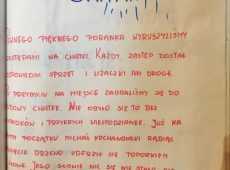 PEWNEGO PIĘKNEGO PORANKA WYRUSZYLIŚMY
ZASTĘPAMI NA CHATKI. KAŻDY ZASTĘP DOSTAŁ
ODPOWIEDNI SPRZĘT I LIZACZKI NA DROGĘ.
PO PRZYBYCIU NA MIEJSCE ZABRALIŚMY SIĘ DO
BUDOWY CHATEK. NIE OBYŁO SIĘ TO BEZ
I PRZYKRYCH NIESPODZIANEK. JUŻ NA
POCZĄTKU MICHAŚ KOCHANOWSKI RĄBIĄC
DRZEWO UDERZYŁ SIĘ TOPORKIEM
JEGO GŁOWIE NIC SIĘ NIE STAŁO